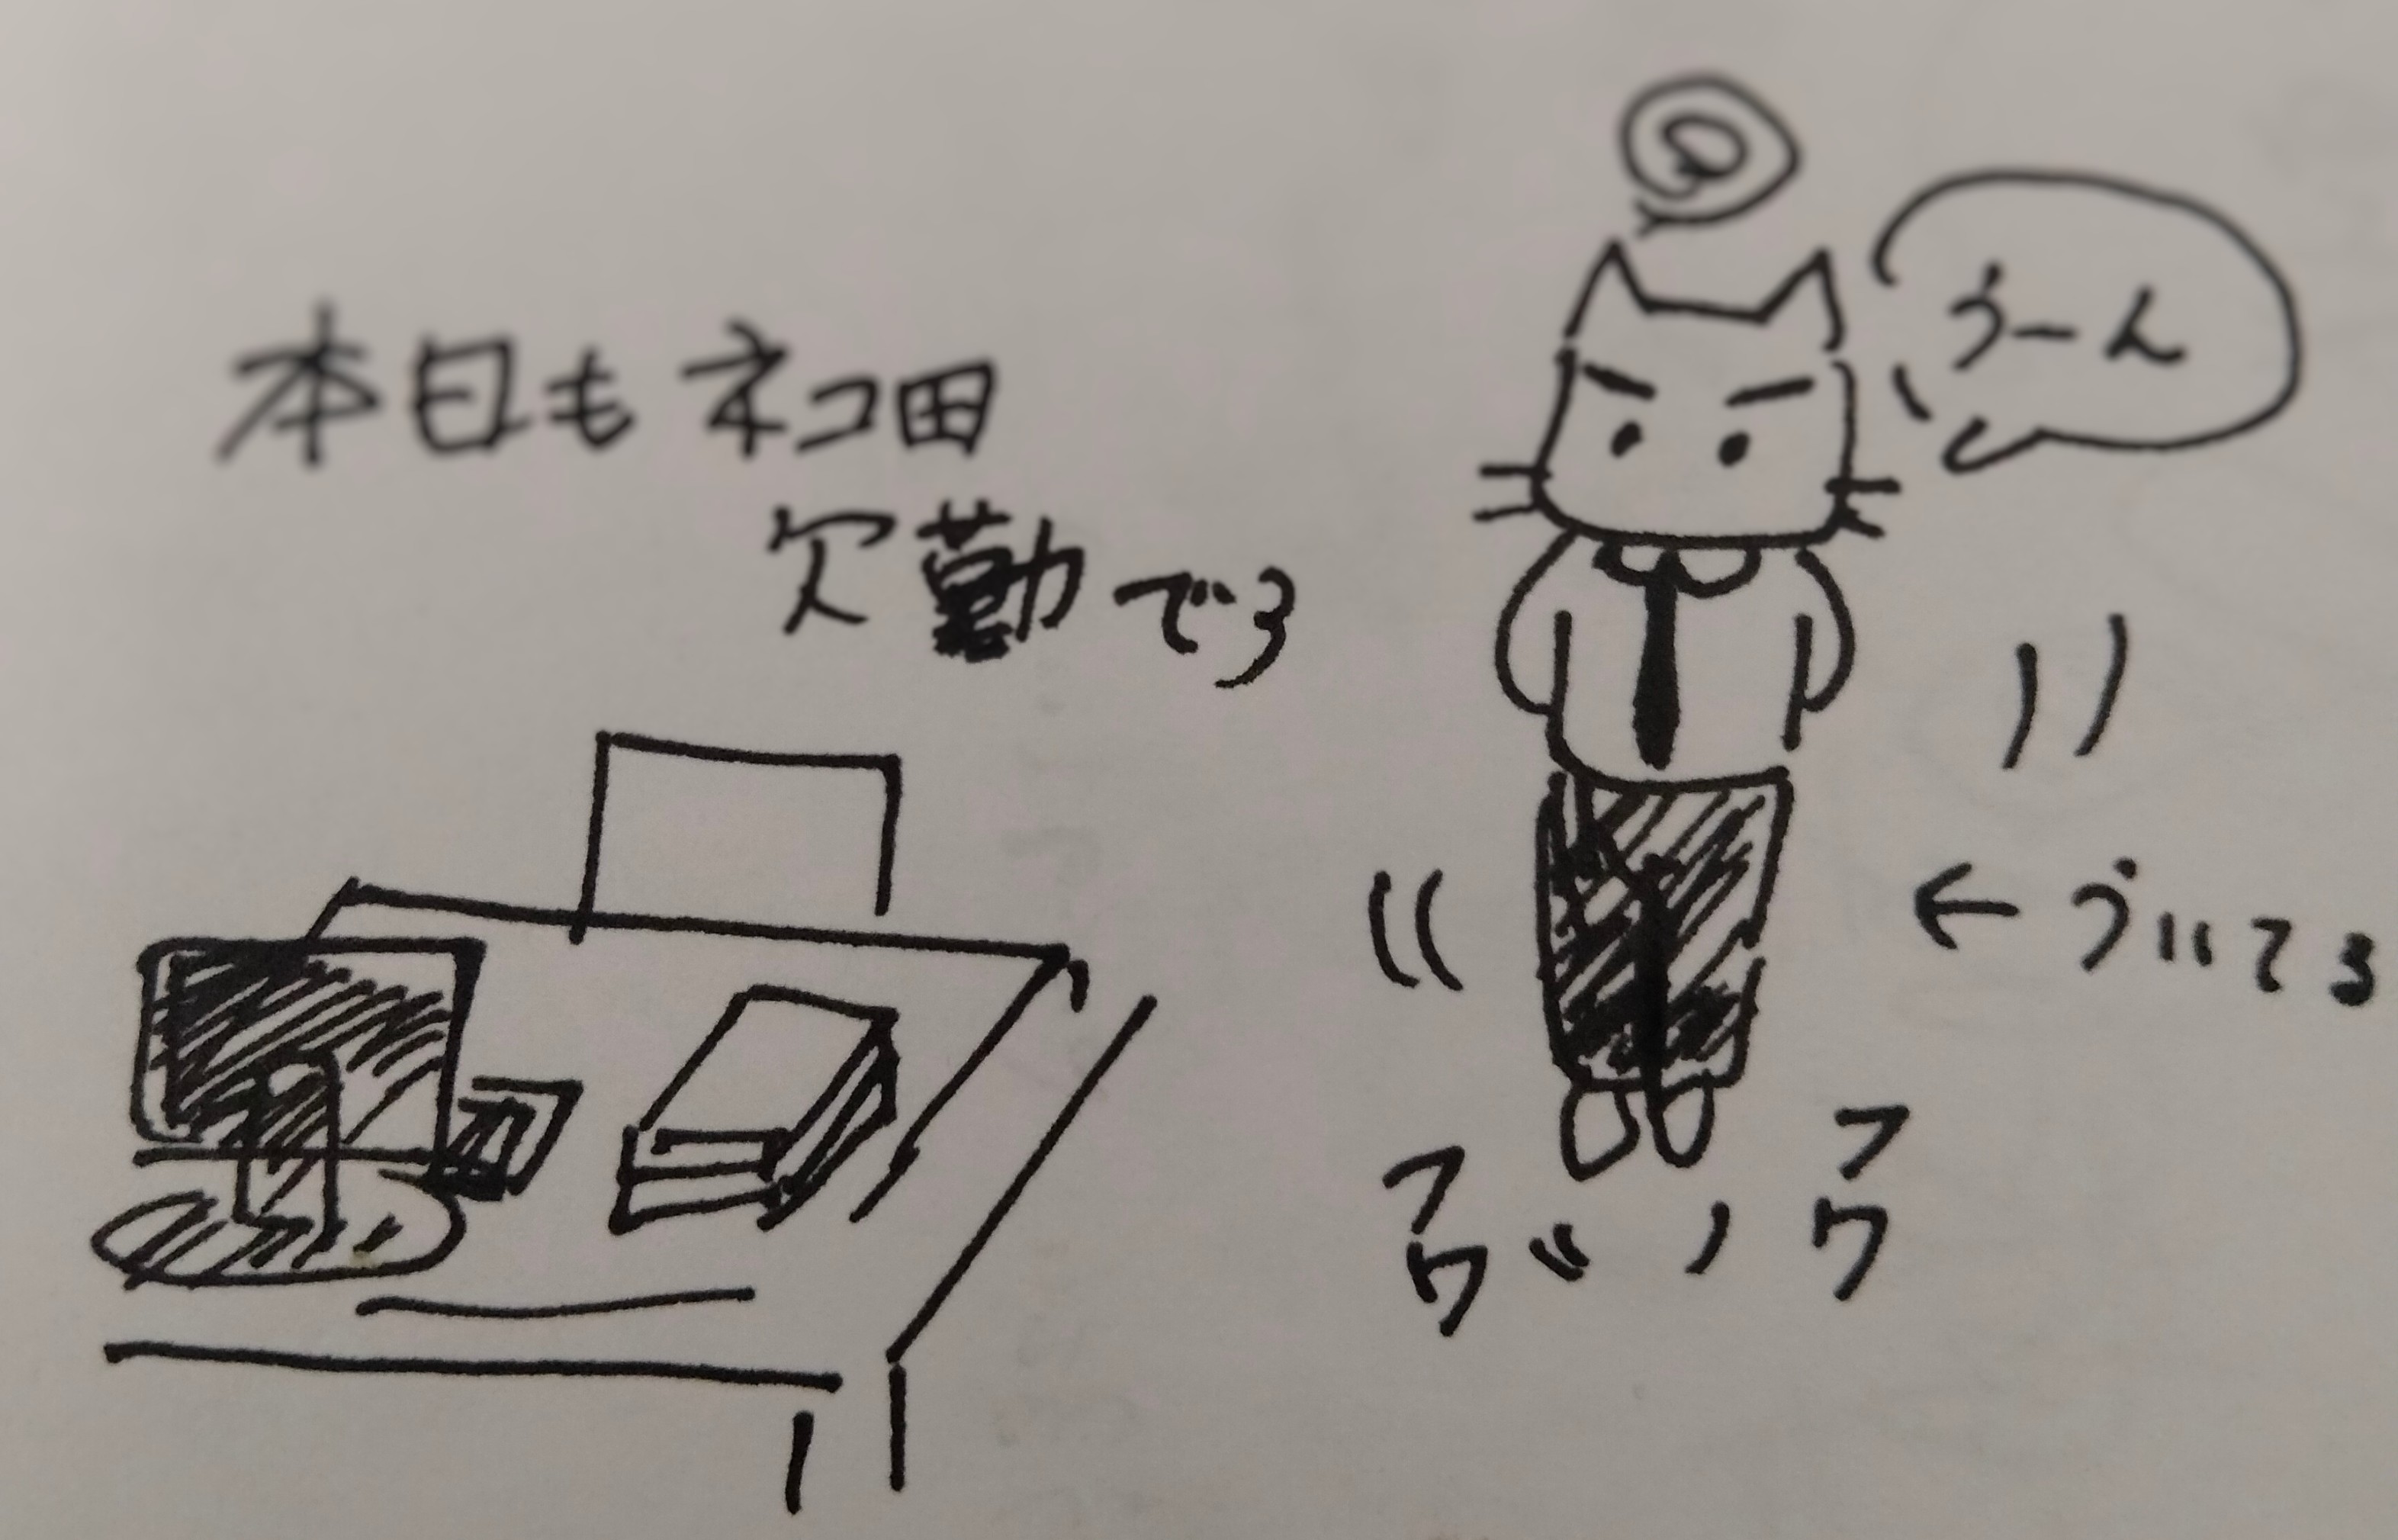 本日もネコ田
欠勤です
うーん
←ういてる
フワ
フワ